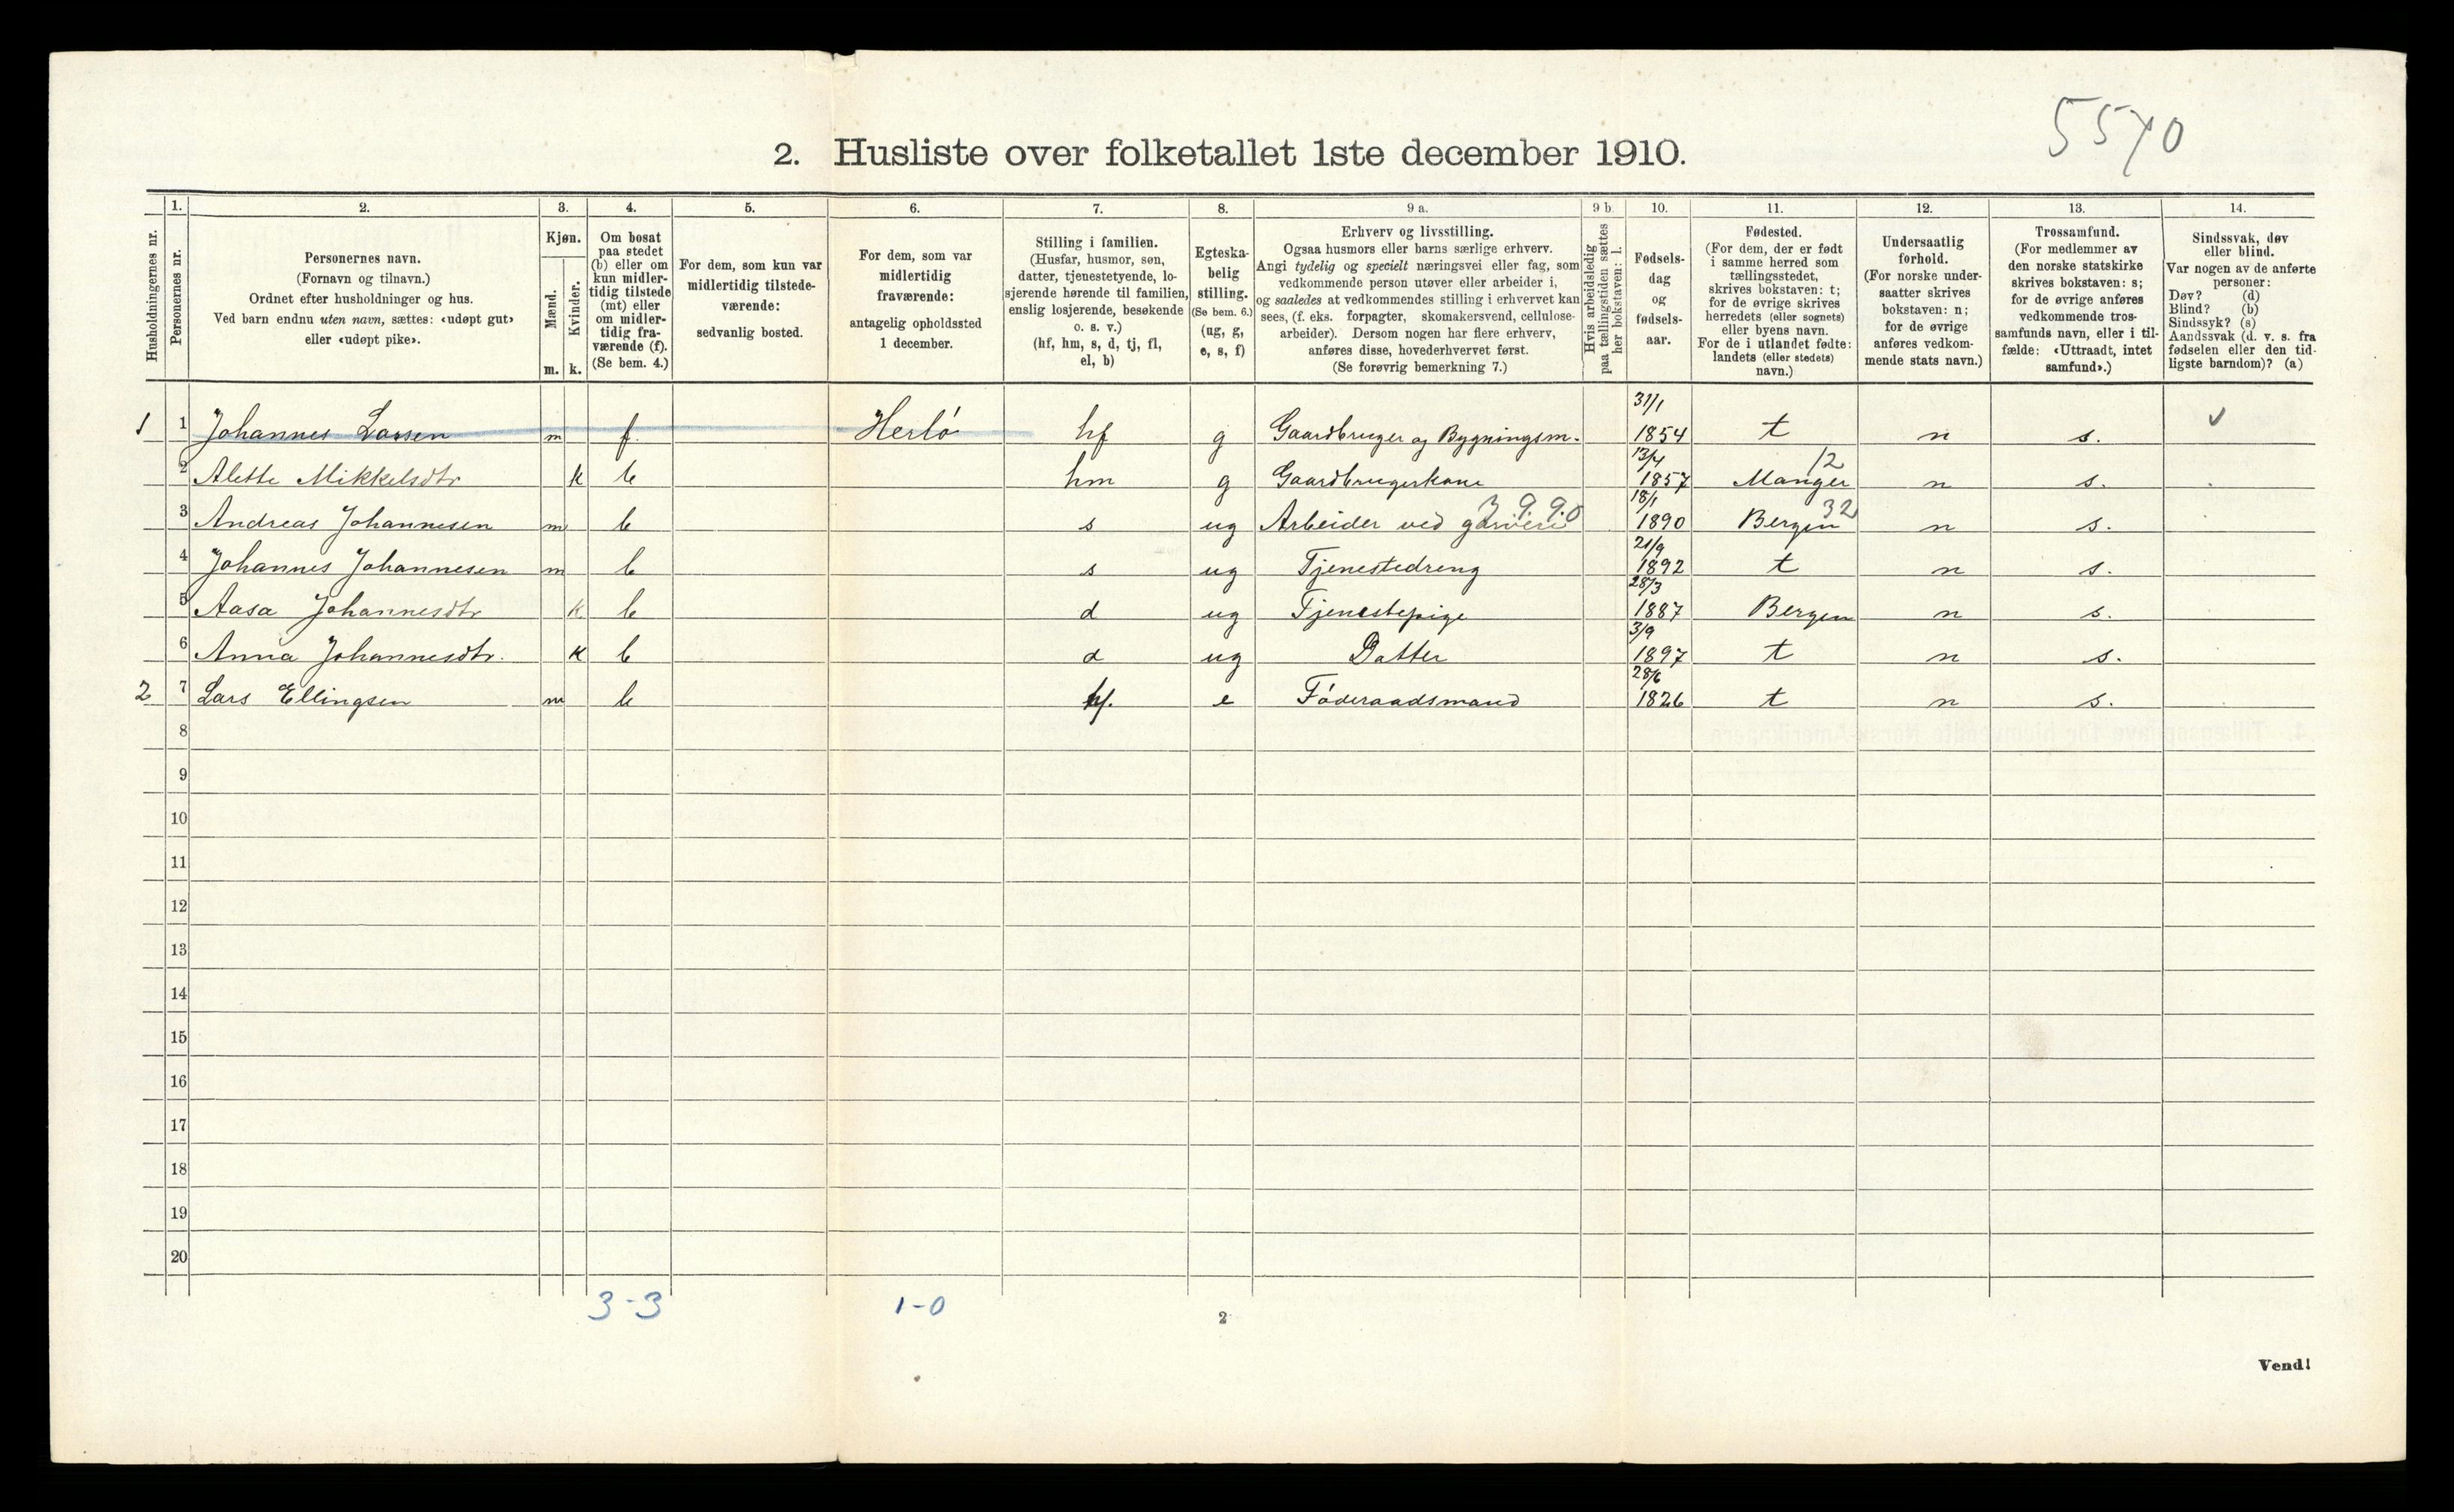 5570
2. Husliste over folketallet 1ste december 1910.
Husholdningernes nr.
1.
Personernes nr.
2.
Personernes navn.
(Fornavn og tilnavn.)
Ordnet efter husholdninger og hus.
Ved barn endnu uten navn, sættes: «udøpt gut»
eller «udøpt pike».
3.
Kjøn.
Mænd.
Kvinder.
m. k.
4.
Om bosat
paa stedet
(b) eller om
kun midler-
tidig tilstede
(mt) eller
om midler-
tidig fra-
værende (f).
(Se bem. 4.)
5.
For dem, som kun var
midlertidig tilstede-
værende:
sedvanlig bosted.
6.
For dem, som var
midlertidig
fraværende:
antagelig opholdssted
1 december.
7.
Stilling i familien.
(Husfar, husmor, søn,
datter, tjenestetyende, lo-
sjerende hørende til familien,
enslig losjerende, besøkende
o. s. v.)
(hf, hm, s, d, tj, fl,
el, b)
8.
Egteska-
belig
stilling.
(Se bem. 6.)
(ug, g,
e, s, f)
9 a.
Erhverv og livsstilling.
Ogsaa husmors eller barns særlige erhverv.
Angi tydelig og specielt næringsvei eller fag, som
vedkommende person utøver eller arbeider i,
og saaledes at vedkommendes stilling i erhvervet kan
sees, (f. eks. forpagter, skomakersvend, cellulose-
arbeider). Dersom nogen har flere erhverv,
anføres disse, hovederhvervet først.
(Se forøvrig bemerkning 7.)
9 b
Hvis arbeidsledig
paa tællingstiden sættes
her bokstaven: l.
10.
Fødsels-
dag
og
fødsels-
aar.
11.
Fødested.
(For dem, der er født
i samme herred som
tællingsstedet,
skrives bokstaven: t;
for de øvrige skrives
herredets (eller sognets)
eller byens navn.
For de i utlandet fødte:
landets (eller stedets)
navn.)
12.
Undersaatlig
forhold.
(For norske under-
saatter skrives
bokstaven: n;
for de øvrige
anføres vedkom-
mende stats navn.)
13.
Trossamfund.
(For medlemmer av
den norske statskirke
skrives bokstaven: s;
for de øvrige anføres
vedkommende tros-
samfunds navn, eller i til-
fælde: «Uttraadt, intet
samfund».)
14.
Sindssvak, døv
eller blind.
Var nogen av de anførte
personer:
Døv? (d)
Blind? (b)
Sindssyk? (s)
Aandssvak (d. v. s. fra
fødselen eller den tid-
ligste barndom)? (a)
1 1 Johannes Larsen m f. Herlö hf g Gaardbruger og Bygningsm. 31/1 1854 t n s. ✓
2 Alette Mikkelsdtr k b hm g Gaardbrugerkone 13/4 1857 Manger 12 n s.
3 Andreas Johannesen m b s ug Arbeider ved garveri 399.0 18/1 1890 Bergen 32 n s.
4 Johannes Johannesen m b s ug Tjenestedreng 21/9 1892 t n s.
5 Aasa Johannesdtr k b d ug Tjenestepige 28/3 1887 Bergen n s.
6 Anna Johannesdtr. k b d ug Datter 3/9 1897 t n s.
2 7 Lars Ellingsen m b hf. e Föderaadsmand 28/6 1826 t n s.
8
9
10
11
12
13
14
15
16
17
18
19
20
3-3 1-0
2
Vend!